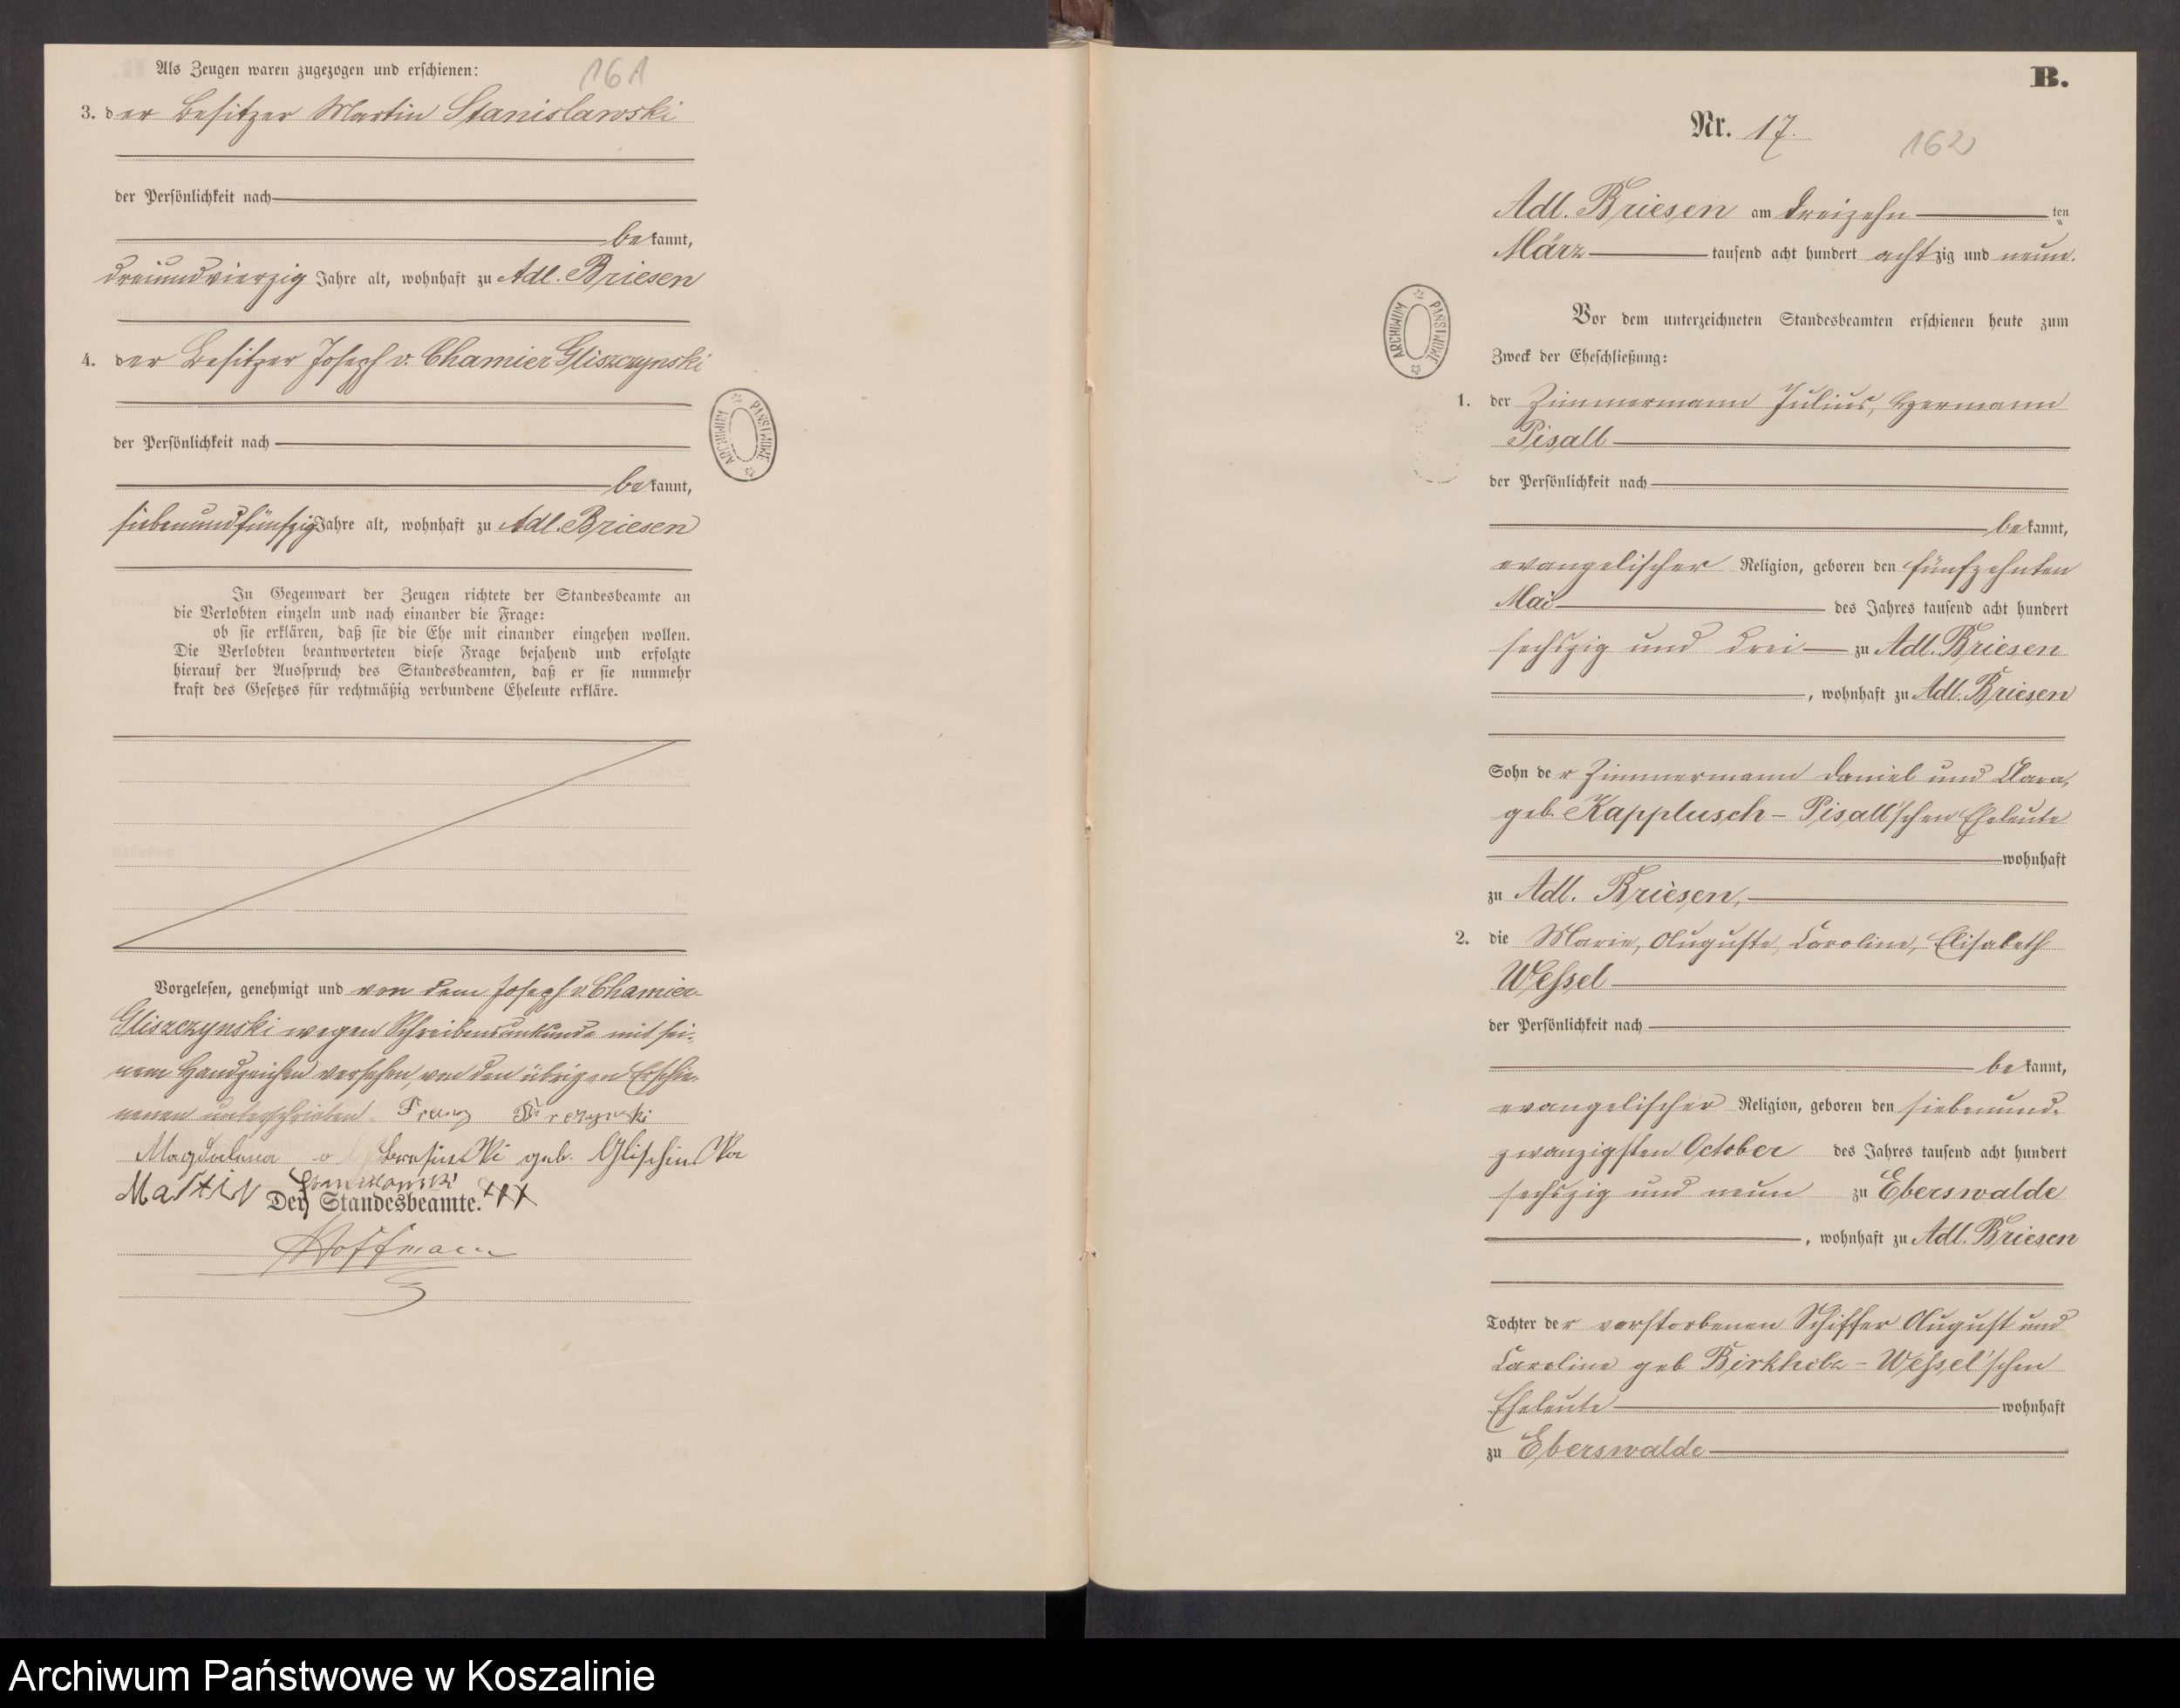 Als Zeugen waren zugezogen und erschienen:
161
3. der Besitzer Martin Stanislawski
der Persönlichkeit nach
bekannt,
dreiundvierzig Jahre alt, wohnhaft zu Adl. Briesen
4. der Besitzer Joseph v. Chamier Gliszczynski
der Persönlichkeit nach
bekannt,
siebenundfünfzig Jahre alt, wohnhaft zu Adl. Briesen
In Gegenwart der Zeugen richtete der Standesbeamte an
die Verlobten einzeln und nach einander die Frage:
ob sie erklären, daß sie die Ehe mit einander eingehen wollen.
Die Verlobten beantworteten diese Frage bejahend und erfolgte
hierauf der Ausspruch des Standesbeamten, daß er sie nunmehr
kraft des Gesetzes für rechtmäßig verbundene Eheleute erkläre.
Vorgelesen, genehmigt und von dem Joseph v. Chamier-
Gliszczynski wegen Schreibensunkunde mit sei-
nem Handzeichen versehen, von den übrigen Erschie-
nenen unterschrieben. Franz
Magdalena geb.
Martin Stanislawski
Der Standesbeamte. +++
Hoffmann
ARCHIWUM PAŃSTWOWE
B.
Nr. 17.
162
Adl. Briesen am dreizehn ten
März tausend acht hundert achtzig und neun.
Vor dem unterzeichneten Standesbeamten erschienen heute zum
Zweck der Eheschließung:
ARCHIWUM PAŃSTWOWE
1. der Zimmermann Julius, Hermann
Pisall
der Persönlichkeit nach
bekannt,
evangelischer Religion, geboren den fünfzehnten
Mai des Jahres tausend acht hundert
sechszig und drei zu Adl. Briesen
, wohnhaft zu Adl. Briesen
Sohn der Zimmermann Daniel und Clara,
geb. Kapplusch - Pisall'schen Eheleute
wohnhaft
zu Adl. Briesen,
2. die Marie, Auguste, Caroline, Elisabeth
Weßel
der Persönlichkeit nach
bekannt,
evangelischer Religion, geboren den siebenund-
zwanzigsten October des Jahres tausend acht hundert
sechszig und neun zu Eberswalde
, wohnhaft zu Adl. Briesen
Tochter der verstorbenen Schiffer August und
Caroline geb Birkholz - Weßel'schen
Eheleute wohnhaft
zu Eberswalde
Archiwum Państwowe w Koszalinie